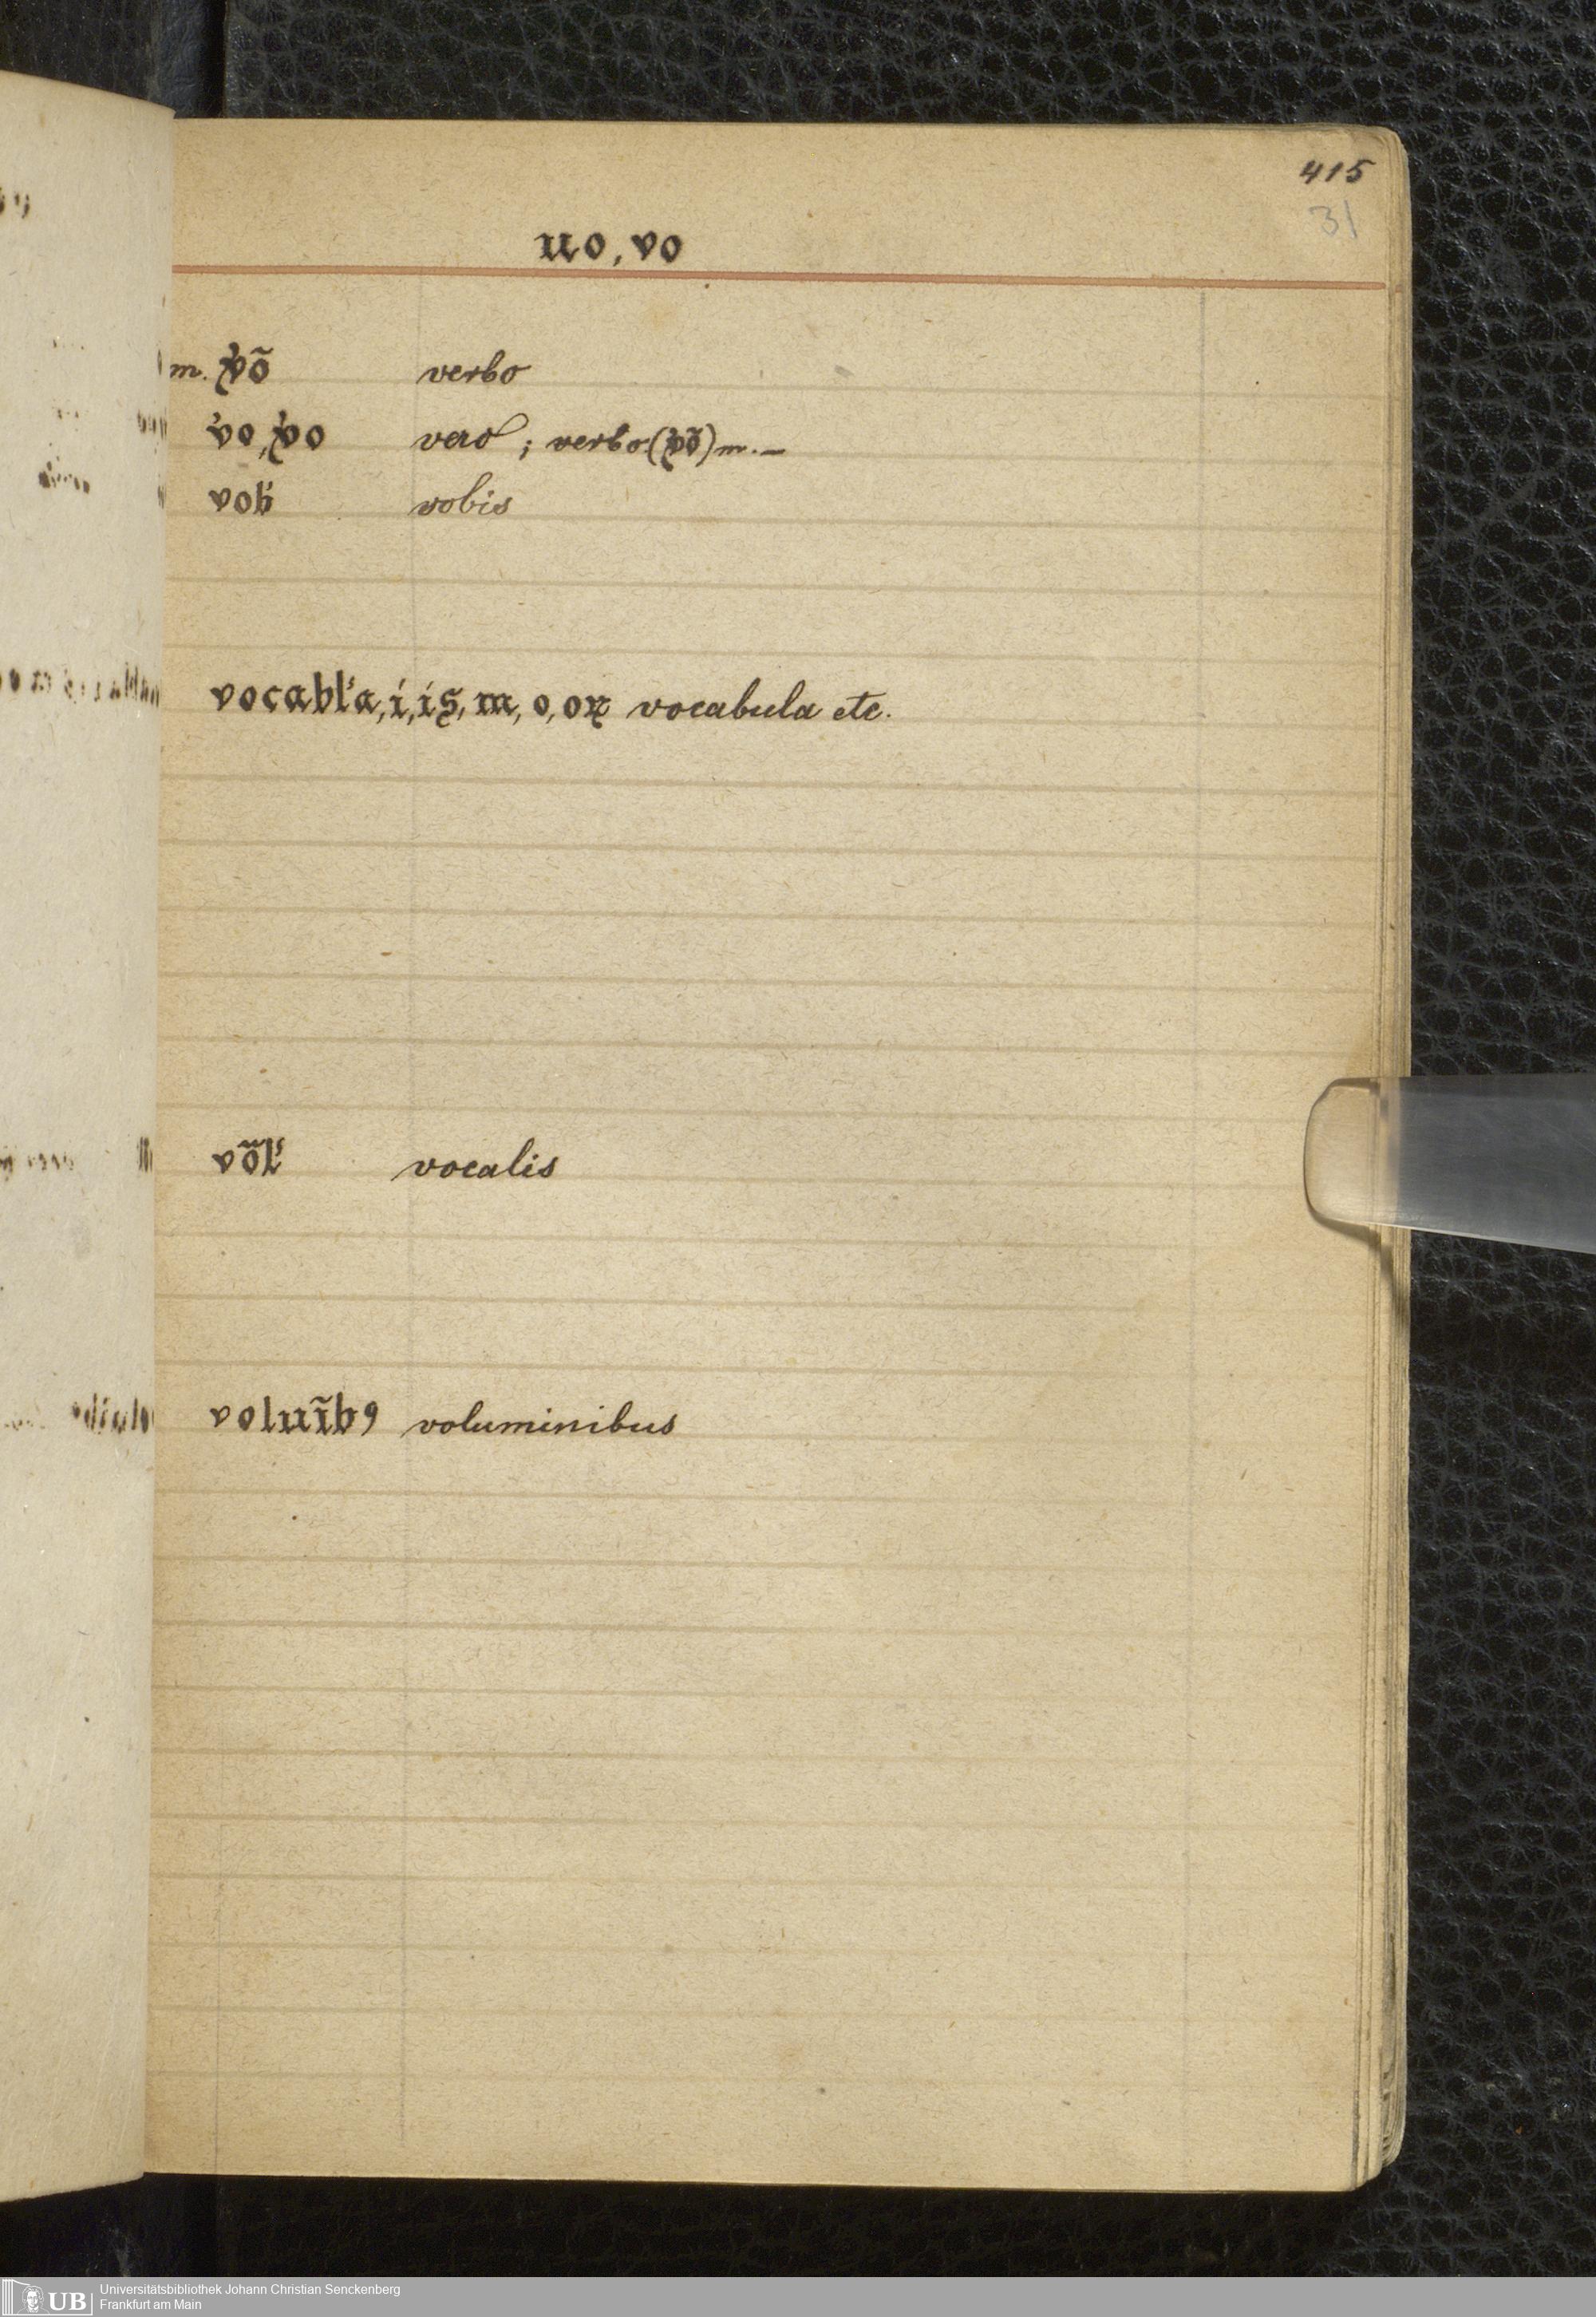 415
31
uo, vo
m. ꝟõ verbo
v̓o, ꝟo vero ; verbo (ꝟõ) m. –
vob̓ vobis
vocabl̓a, i, is, m, o, oꝝ vocabula etc.
võl̓ vocalis
voluĩbꝰ voluminibus
UB Universitätsbibliothek Johann Christian Senckenberg
Frankfurt am Main